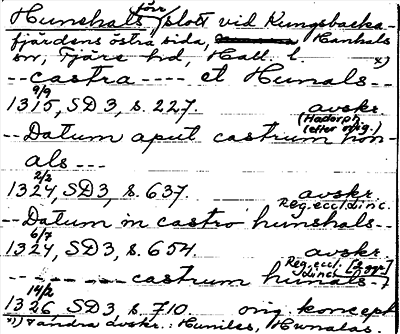 Hunehals förr slott vid Kungsbacka-
fjärdens östra sida, Hanhals
sn, Fjäre hd, Hall. l. x)
-- castra ---- et Hunals --
1315, 9/9 SD 3, s. 227. avskr.
(Hadorph
(efter orig.)
-- Datum aput castrum hon-
als ---
1324, 2/2 SD 3, s. 637. avskr.
Reg. eccl. linc.
-- Datum in castro hunshals --
1324, 6/7 SD 3, s. 654. avskr.
Reg. eccl.
------ castrum hunals -
1326 14/2 SD 3, s. 710. orig. koncept
x) I andra avskr.: Huniles, Hunalas.